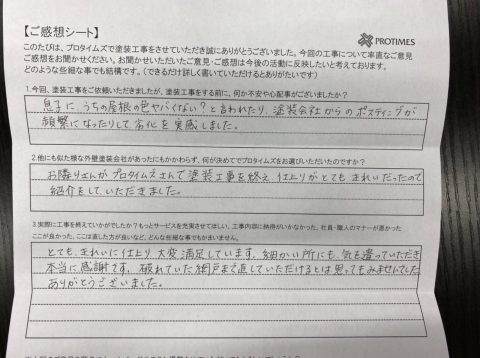 【ご感想シート】
PROTIMES
このたびは、プロタイムズで塗装工事をさせていただき誠にありがとうございました。今回の工事について率直なご意見
ご感想をお聞かせください。お聞かせいただいたご意見・ご感想は今後の活動に反映したいと考えております。
どのような些細な事でも結構です。（できるだけ詳しく書いていただけるとありがたいです）
1.今回、塗装工事をご依頼いただきましたが、塗装工事をする前に、何か不安や心配事がございましたか？
息子に、うちの屋根の色ヤバくない？と言われたり、塗装会社からのポスティングが
頻繁になったりして劣化を実感しました。
2.他にも似た様な外壁塗装会社があったにもかかわらず、何が決めてでプロタイムズをお選びいただいたのですか？
お隣りさんがプロタイムズさんで塗装工事を終え、仕上りがとてもきれいだったので
紹介をしていただきました。
3.実際に工事を終えていかがでしたか？もっとサービスを充実させてほしい。工事内容に納得がいかなかった。社員・職人のマナーが悪かった
ここが良かった、ここは直した方が良いなど、どんな些細な事でもかまいません。
とても、きれいに仕上り、大変満足しています。細かい所にも、気を遣っていただき
本当に感謝です。破れていた網戸まで直していただけるとは思ってもみませんでした
ありがとうございました。